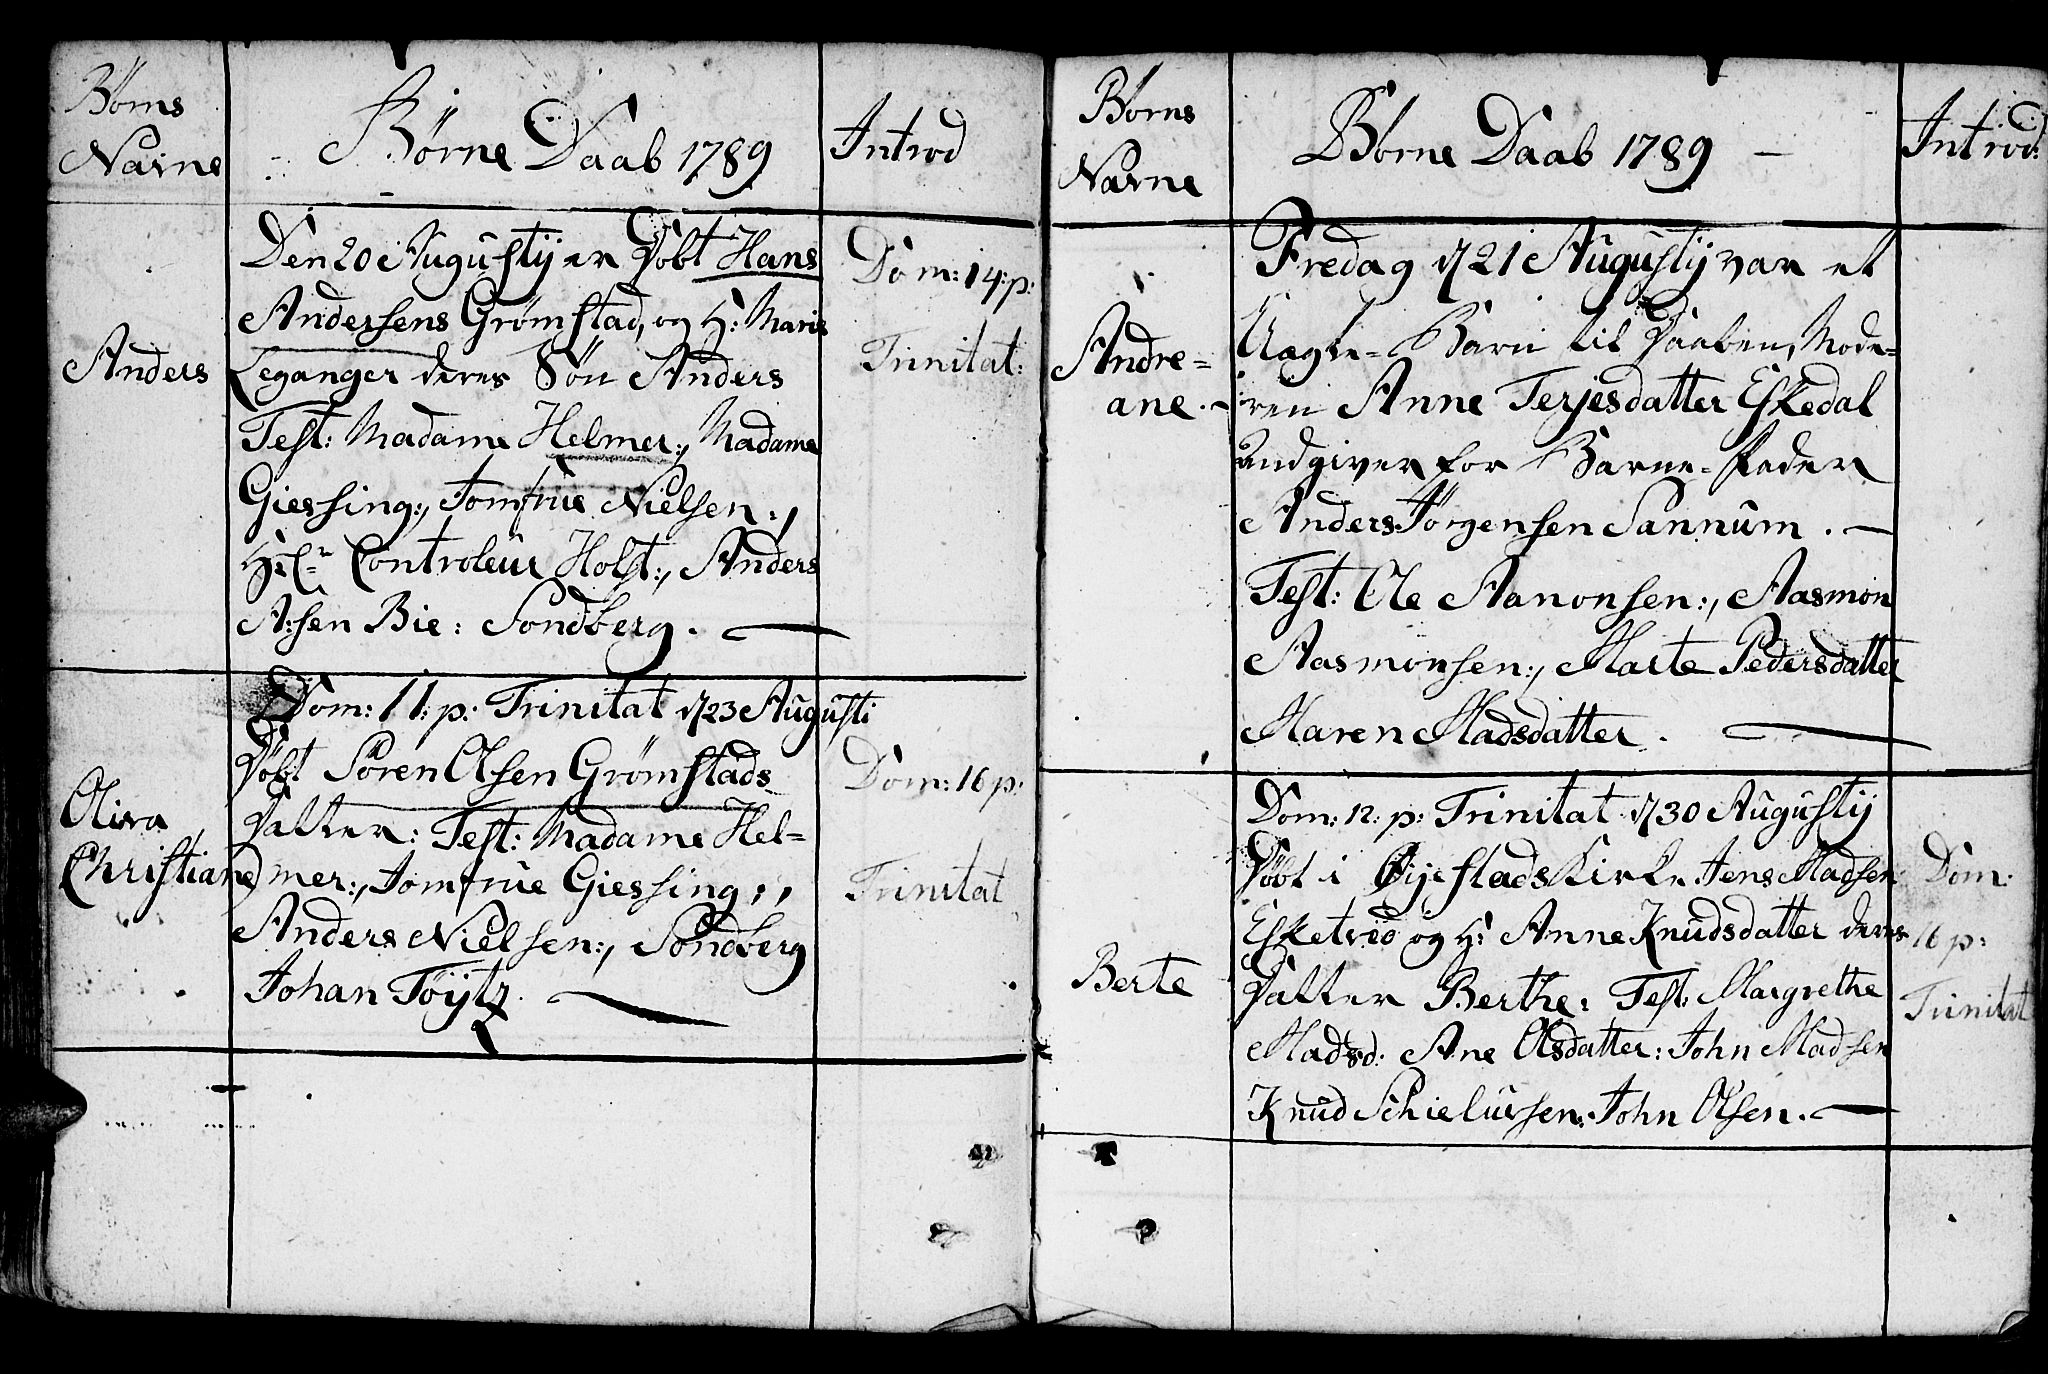 Börns
Navne
Börne Daab 1789
Introd
Den 20 Augustij er Döbt Hans
Andersens Grömstad, og H: Maris
Leganger deres Sön Anders
Test: Madame Helmer:, Madame
Giessing:, Jomfrue Nielsen:,
Controleur Holst:, Anders
A:sen Bie: Sondberg.
Anders
Dom: 14: p:
Trinitat:
Dom: 11: p: Trinitat d 23 Augusti
Döbt Sören Olsen Grömstads
Datter: Test: Madame Hel-
mer:, Jomfrue Giessing:,
Anders Nielsen:, Sondberg
Johan Töÿtz.
Oliva
Christiane
Dom: 16 p:
Trinitat
Börns
Navne
Börne Daab 1789
Introd:
Fredag d 21 Augustij var et
Uægte-Barn til Daaben, Mode-
ren Anne Terjesdatter Eskedal
Andre-
ane.
udgiver for Barne-Fader
Anders Jörgensen Sannum.
Test: Ole Aanonsen:, Aasmon
Aasmonsen:, Marte Pedersdatter
Maren Madsdatter.
Dom: 12: p: Trinitat d 30 Augustij
Döbt i Öijestads Kirke Jens Madsen
Esketveö og H: Anne Knudsdatter deres
Datter Berthe: Test: Margrethe
Madsd: Ane Olsdatter: John Madsen
Knud Schielursen: John Olsen.
Berte
Dom:
16 p:
Trinitat